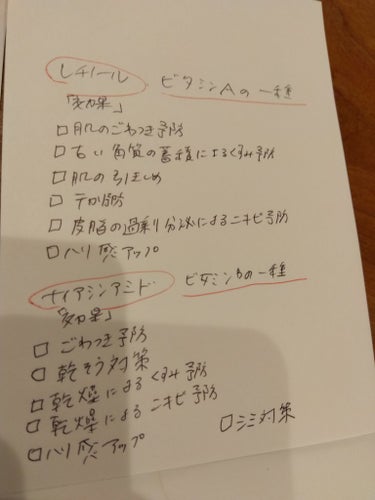 レチノール ビタミンAの一種
「効果」
□肌のごわつき予防
□古い角質の蓄積によるくすみ予防
□肌の引きしめ
□テカリ予防
□皮脂の過剰分泌によるニキビ予防
□ハリ感アップ
ナイアシンアミド ビタミンBの一種
「効果」
□ごわつき予防
□乾そう対策
□乾燥によるくすみ予防
□乾燥によるニキビ予防
□ハリ感アップ □シミ対策